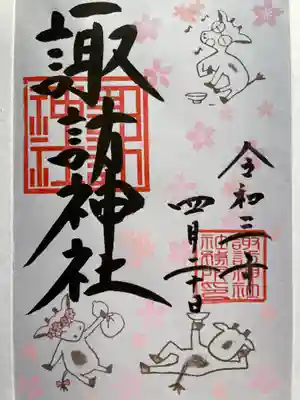 諏訪神社
令和三年
四月二十日